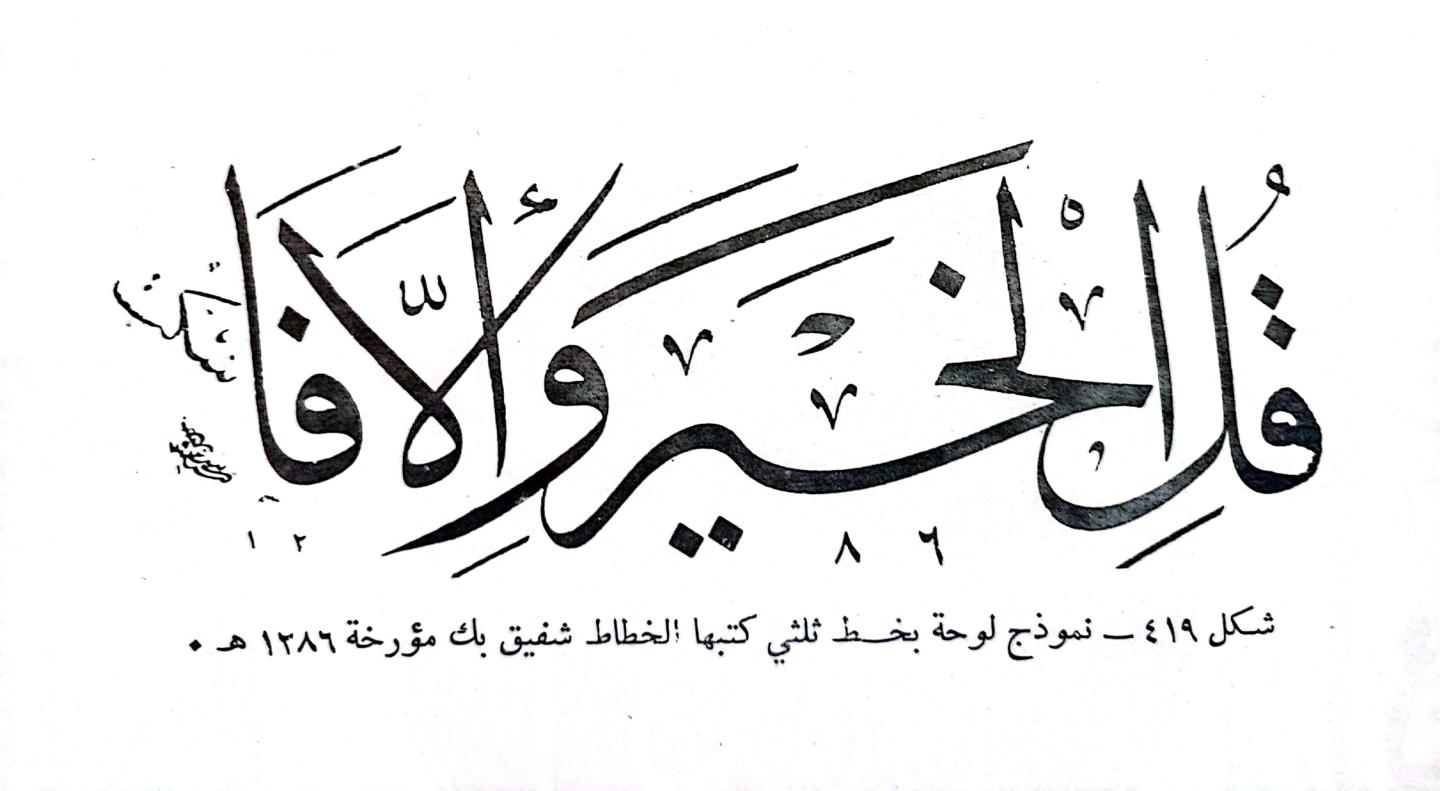 قُلِ الْخَيْرَ وَإِلَّا فَاسكت
١٢٨٦
شكل ٤١٩ – نموذج لوحة بخط ثلثي كتبها الخطاط شفيق بك مؤرخة ١٢٨٦ هـ .